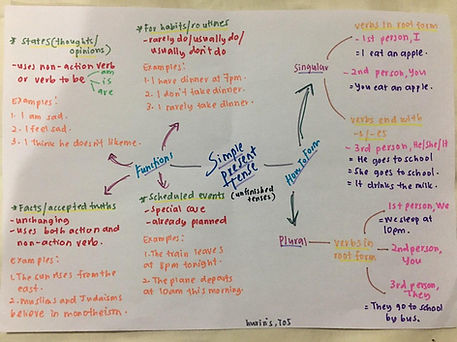 * States (thoughts/
opinions)
- uses non-action verb
or verb to be
am
is
are
Examples:
1. I am sad.
2. I feel sad.
3. I think he doesn't like me.
* For habits/routines
- rarely do/usually do/
usually don't do
Examples:
1. I have dinner at 7pm.
2. I don't take dinner.
3. I rarely take dinner.
Functions
Simple
present
tense
(unfinished
tenses)
How to Form
* Facts/accepted truths
- unchanging
- uses both action and
non-action verb.
Examples:
1. The sun rises from the
east.
2. Muslims and Judaisms
believe in monotheism.
* Scheduled events
- special case
- already planned
Examples:
1. The train leaves
at 8pm tonight.
2. The plane departs
at 10am this morning.
Singular
verbs in root form
- 1st person, I
= I eat an apple.
- 2nd person, You
= You eat an apple.
verbs end with
-s/-es
- 3rd person, He/She/It
= He goes to school
= She goes to school.
= It drinks the milk.
Plural
verbs in
root form
1st person, We
= We sleep at
10pm.
2nd person,
You
3rd person,
They
= They go to school
by bus.